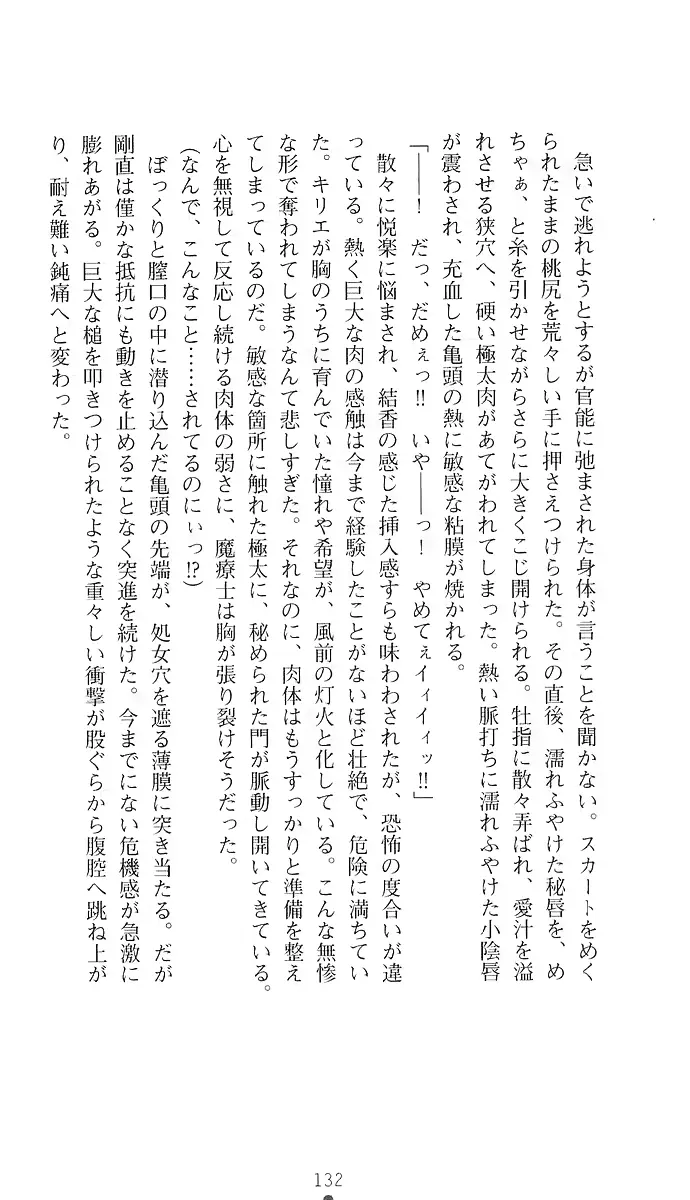 急いで逃れようとするが官能に弛まされた身体が言うことを聞かない。スカートをめく
られたままの桃尻を荒々しい手に押さえつけられた。その直後、濡れふやけた秘唇を、め
ちゃぁ、と糸を引かせながらさらに大きくこじ開けられる。牡指に散々弄ばれ、愛汁を溢
れさせる狭穴へ、硬い極太肉があてがわれてしまった。熱い脈打ちに濡れふやけた小陰唇
が震わされ、充血した亀頭の熱に敏感な粘膜が焼かれる。
「――！　だっ、だめぇっ!!　いや――っ！　やめてぇイィイィッ!!」
散々に悦楽に悩まされ、結香の感じた挿入感すらも味わわされたが、恐怖の度合いが違
っている。熱く巨大な肉の感触は今まで経験したことがないほど壮絶で、危険に満ちてい
た。キリエが胸のうちに育んでいた憧れや希望が、風前の灯火と化している。こんな無惨
な形で奪われてしまうなんて悲しすぎた。それなのに、肉体はもうすっかりと準備を整え
てしまっているのだ。敏感な箇所に触れた極太に、秘められた門が脈動し開いてきている。
心を無視して反応し続ける肉体の弱さに、魔療士は胸が張り裂けそうだった。
(なんで、こんなこと……されてるのにぃっ!?)
ぼっくりと膣口の中に潜り込んだ亀頭の先端が、処女穴を遮る薄膜に突き当たる。だが
剛直は僅かな抵抗にも動きを止めることなく突進を続けた。今までにない危機感が急激に
膨れあがる。巨大な槌を叩きつけられたような重々しい衝撃が股ぐらから腹腔へ跳ね上が
り、耐え難い鈍痛へと変わった。
132